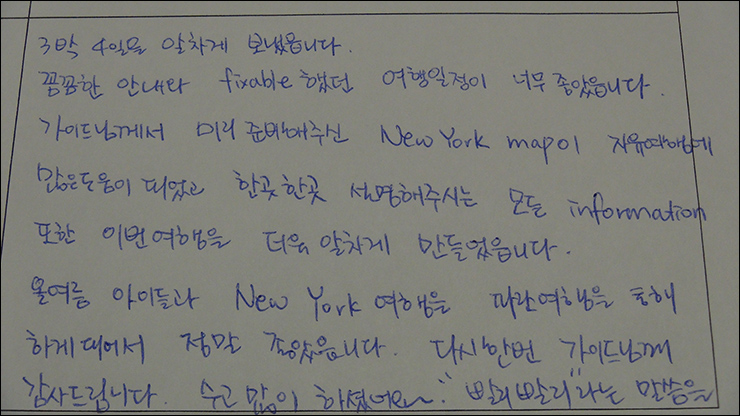 3박 4일을 알차게 보냈읍니다.
꼼꼼한 안내와 fixable했던 여행일정이 너무 좋았읍니다.
가이드님께서 미리 준비해주신 New York map이 자유여행에
많은도움이 되었고 한곳한곳 설명해주시는 모든 information
또한 이번여행을 더욱 알차게 만들었읍니다.
올여름 아이들과 New York 여행을 따란여행을 통해
하게되어서 정말 좋았읍니다. 다시한번 가이드님께
감사드립니다. 수고 많이 하셨어요~ "빨리빨리"라는 말씀을